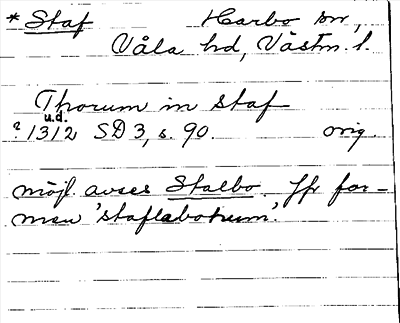 * Staf Harbo sn,
Våla hd, Västm. l.
Thorum in Staf
u.d.
? 1312 SD 3, s. 90. orig.
möjl. avses Stalbo. Jfr for-
men 'staflabotum'.